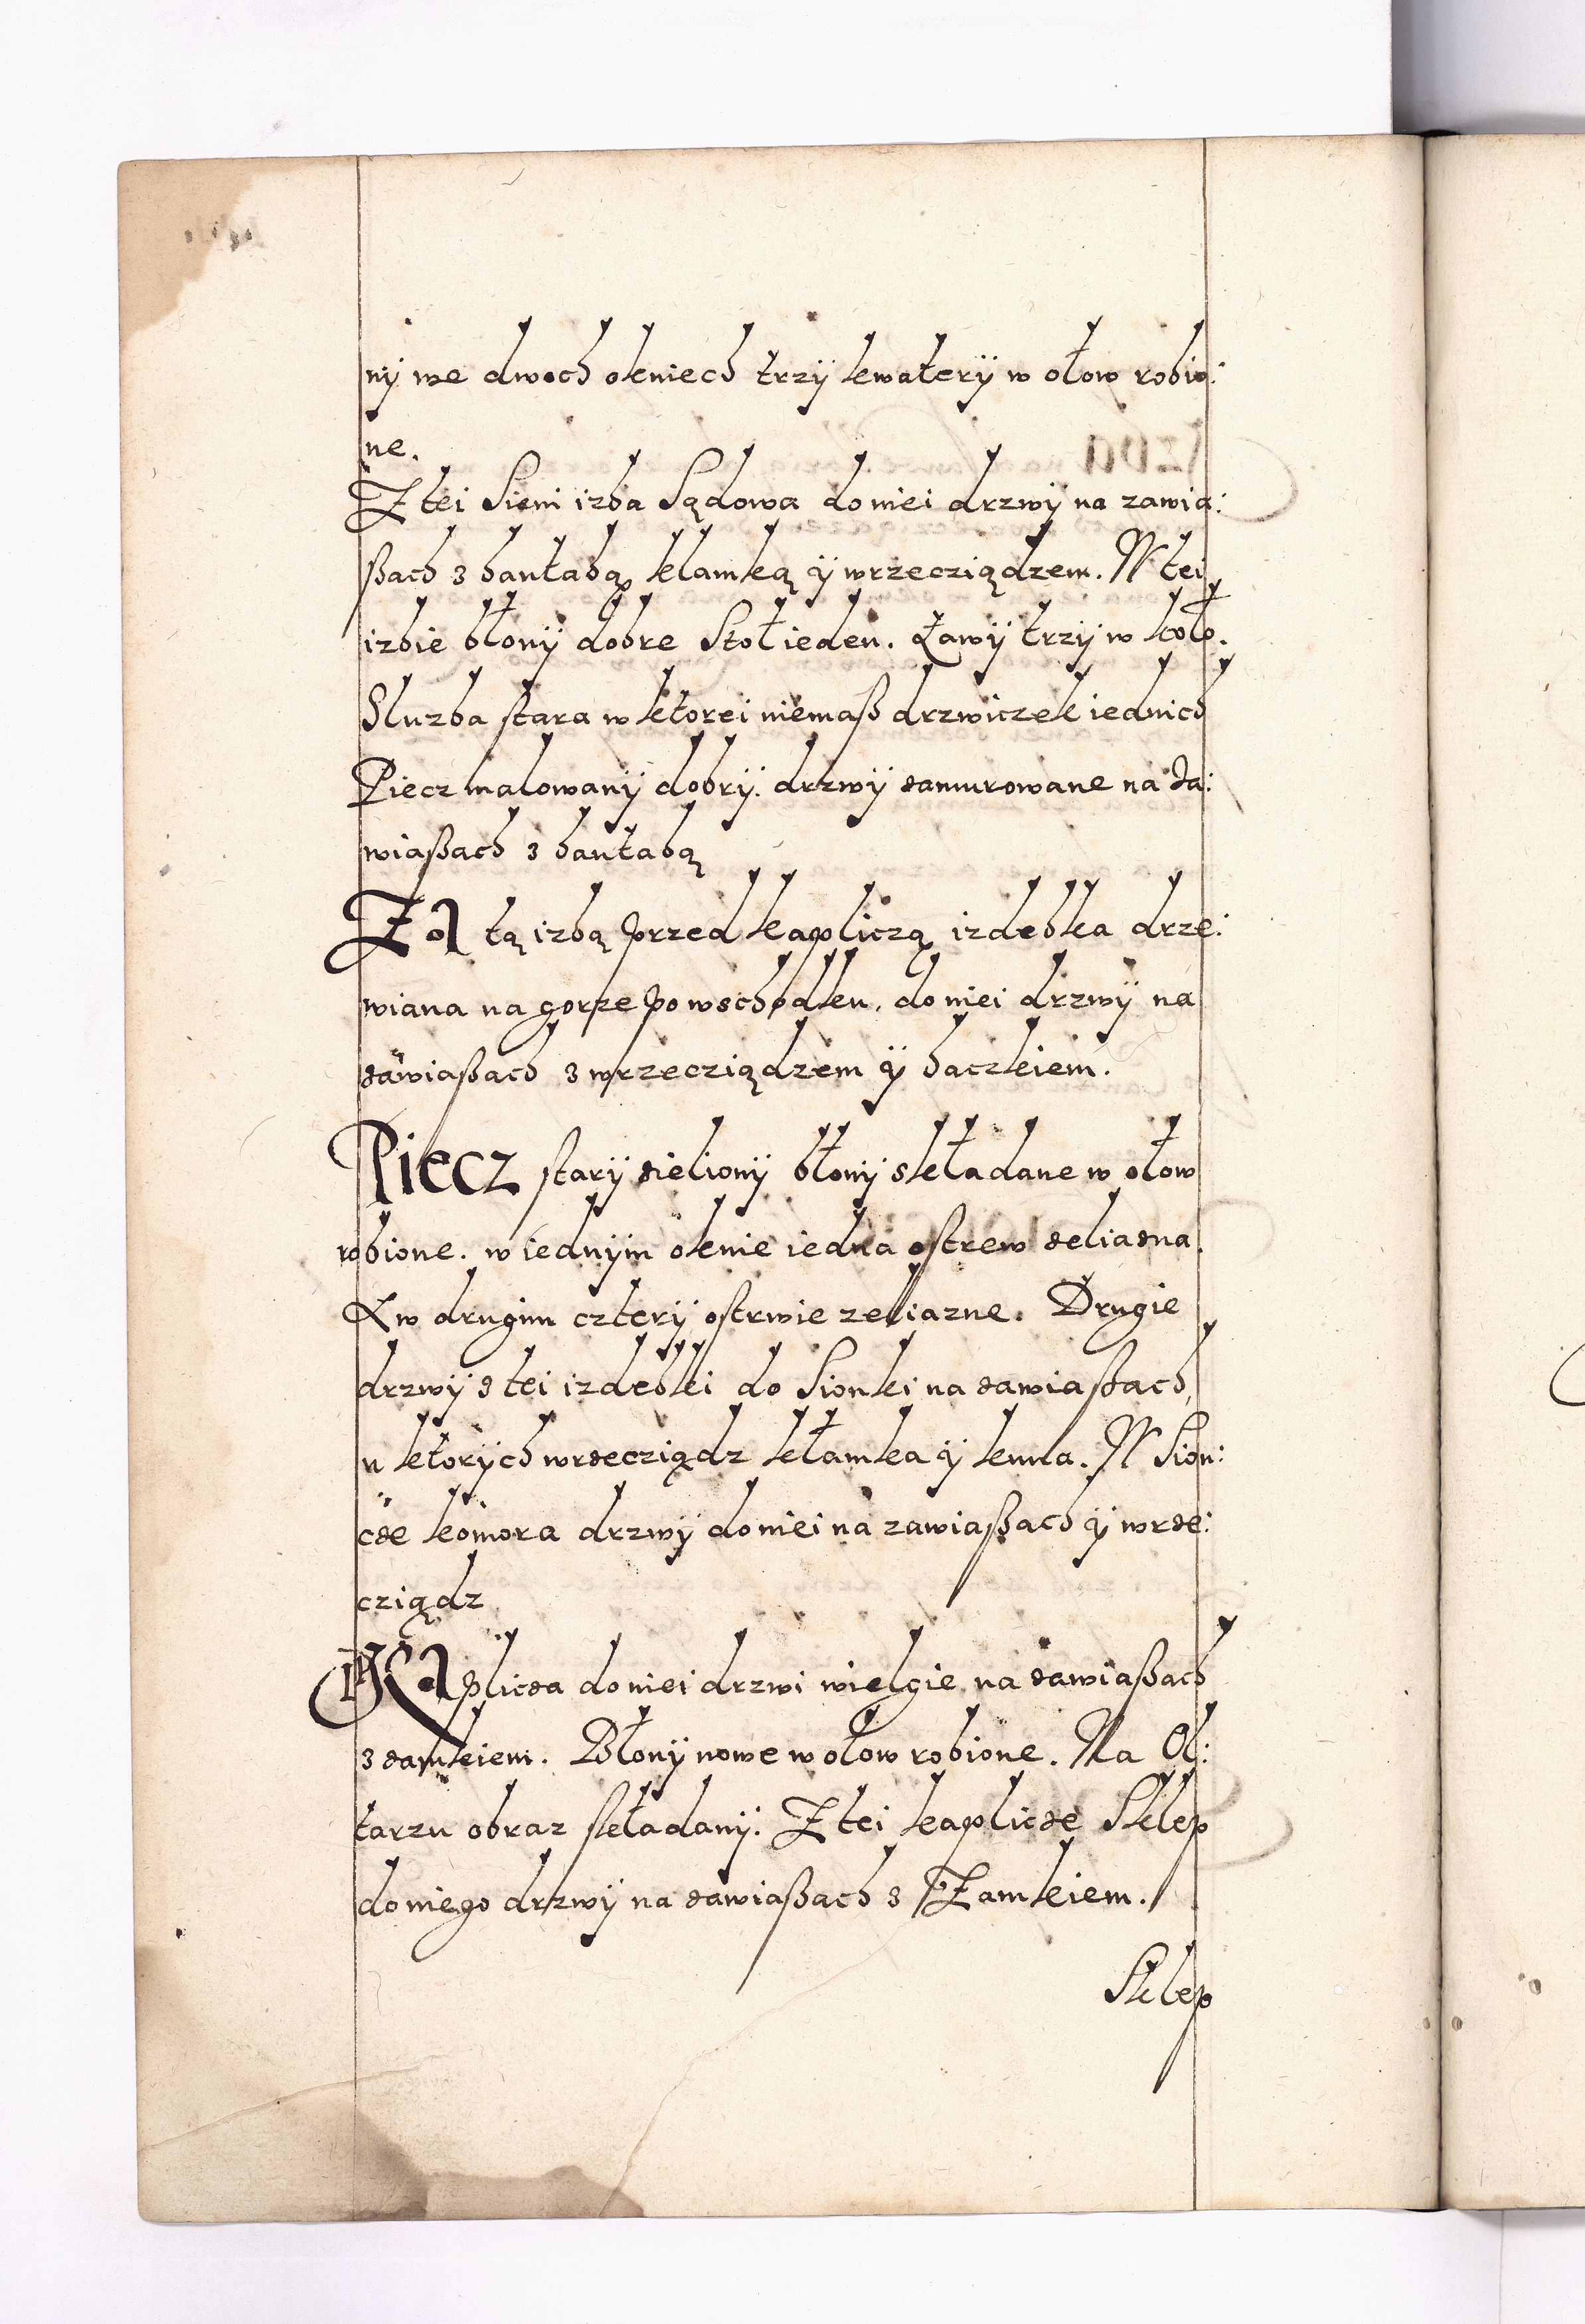 ny we dwoch okniech trzy kwatery w ołow robio:
ne.
Z tei Sieni izba Sądowa do niei drzwi na zawia:
ßach z hantabą klamką ÿ wrzecziądzem. W tei
izbie błony dobre Stoł ieden. Ławÿ trzÿ w koło.
Sluzba stara w ktorei niemaß drzwiczek iednich
Piecz malowanÿ dobrÿ. drzwÿ zamurowane na Za:
wiaßach z hantabą
Za tą izbą przed kapliczą izdebka drze:
wiana na gorze po wschodku, do niei drzwÿ na
zawiaßach z wrzecziądzem ÿ haczkiem.
Piecz starÿ zielionÿ błonÿ składane w ołow
robione. w iednÿm oknie iedna ostrew zeliazna.
A w drugim czterÿ ostrwie zeliazne. Drugie
drzwÿ z tei izdebki do Sionki na zawiaßach,
u ktorÿch wrzecziądz kłamka ÿ kuna. W Sion:
cze komora drzwÿ do niei na zawiaßach ÿ wrze:
cziądz
Kaplicza do niei drzwi wielgie na zawiaßach
z zamkiem. Błonÿ nowe w ołow robione. Na Ol:
tarzu obraz składanÿ. Z tei kaplicze Sklep
do niego drzwÿ na zawiaßach z Zamkiem.
Sklep